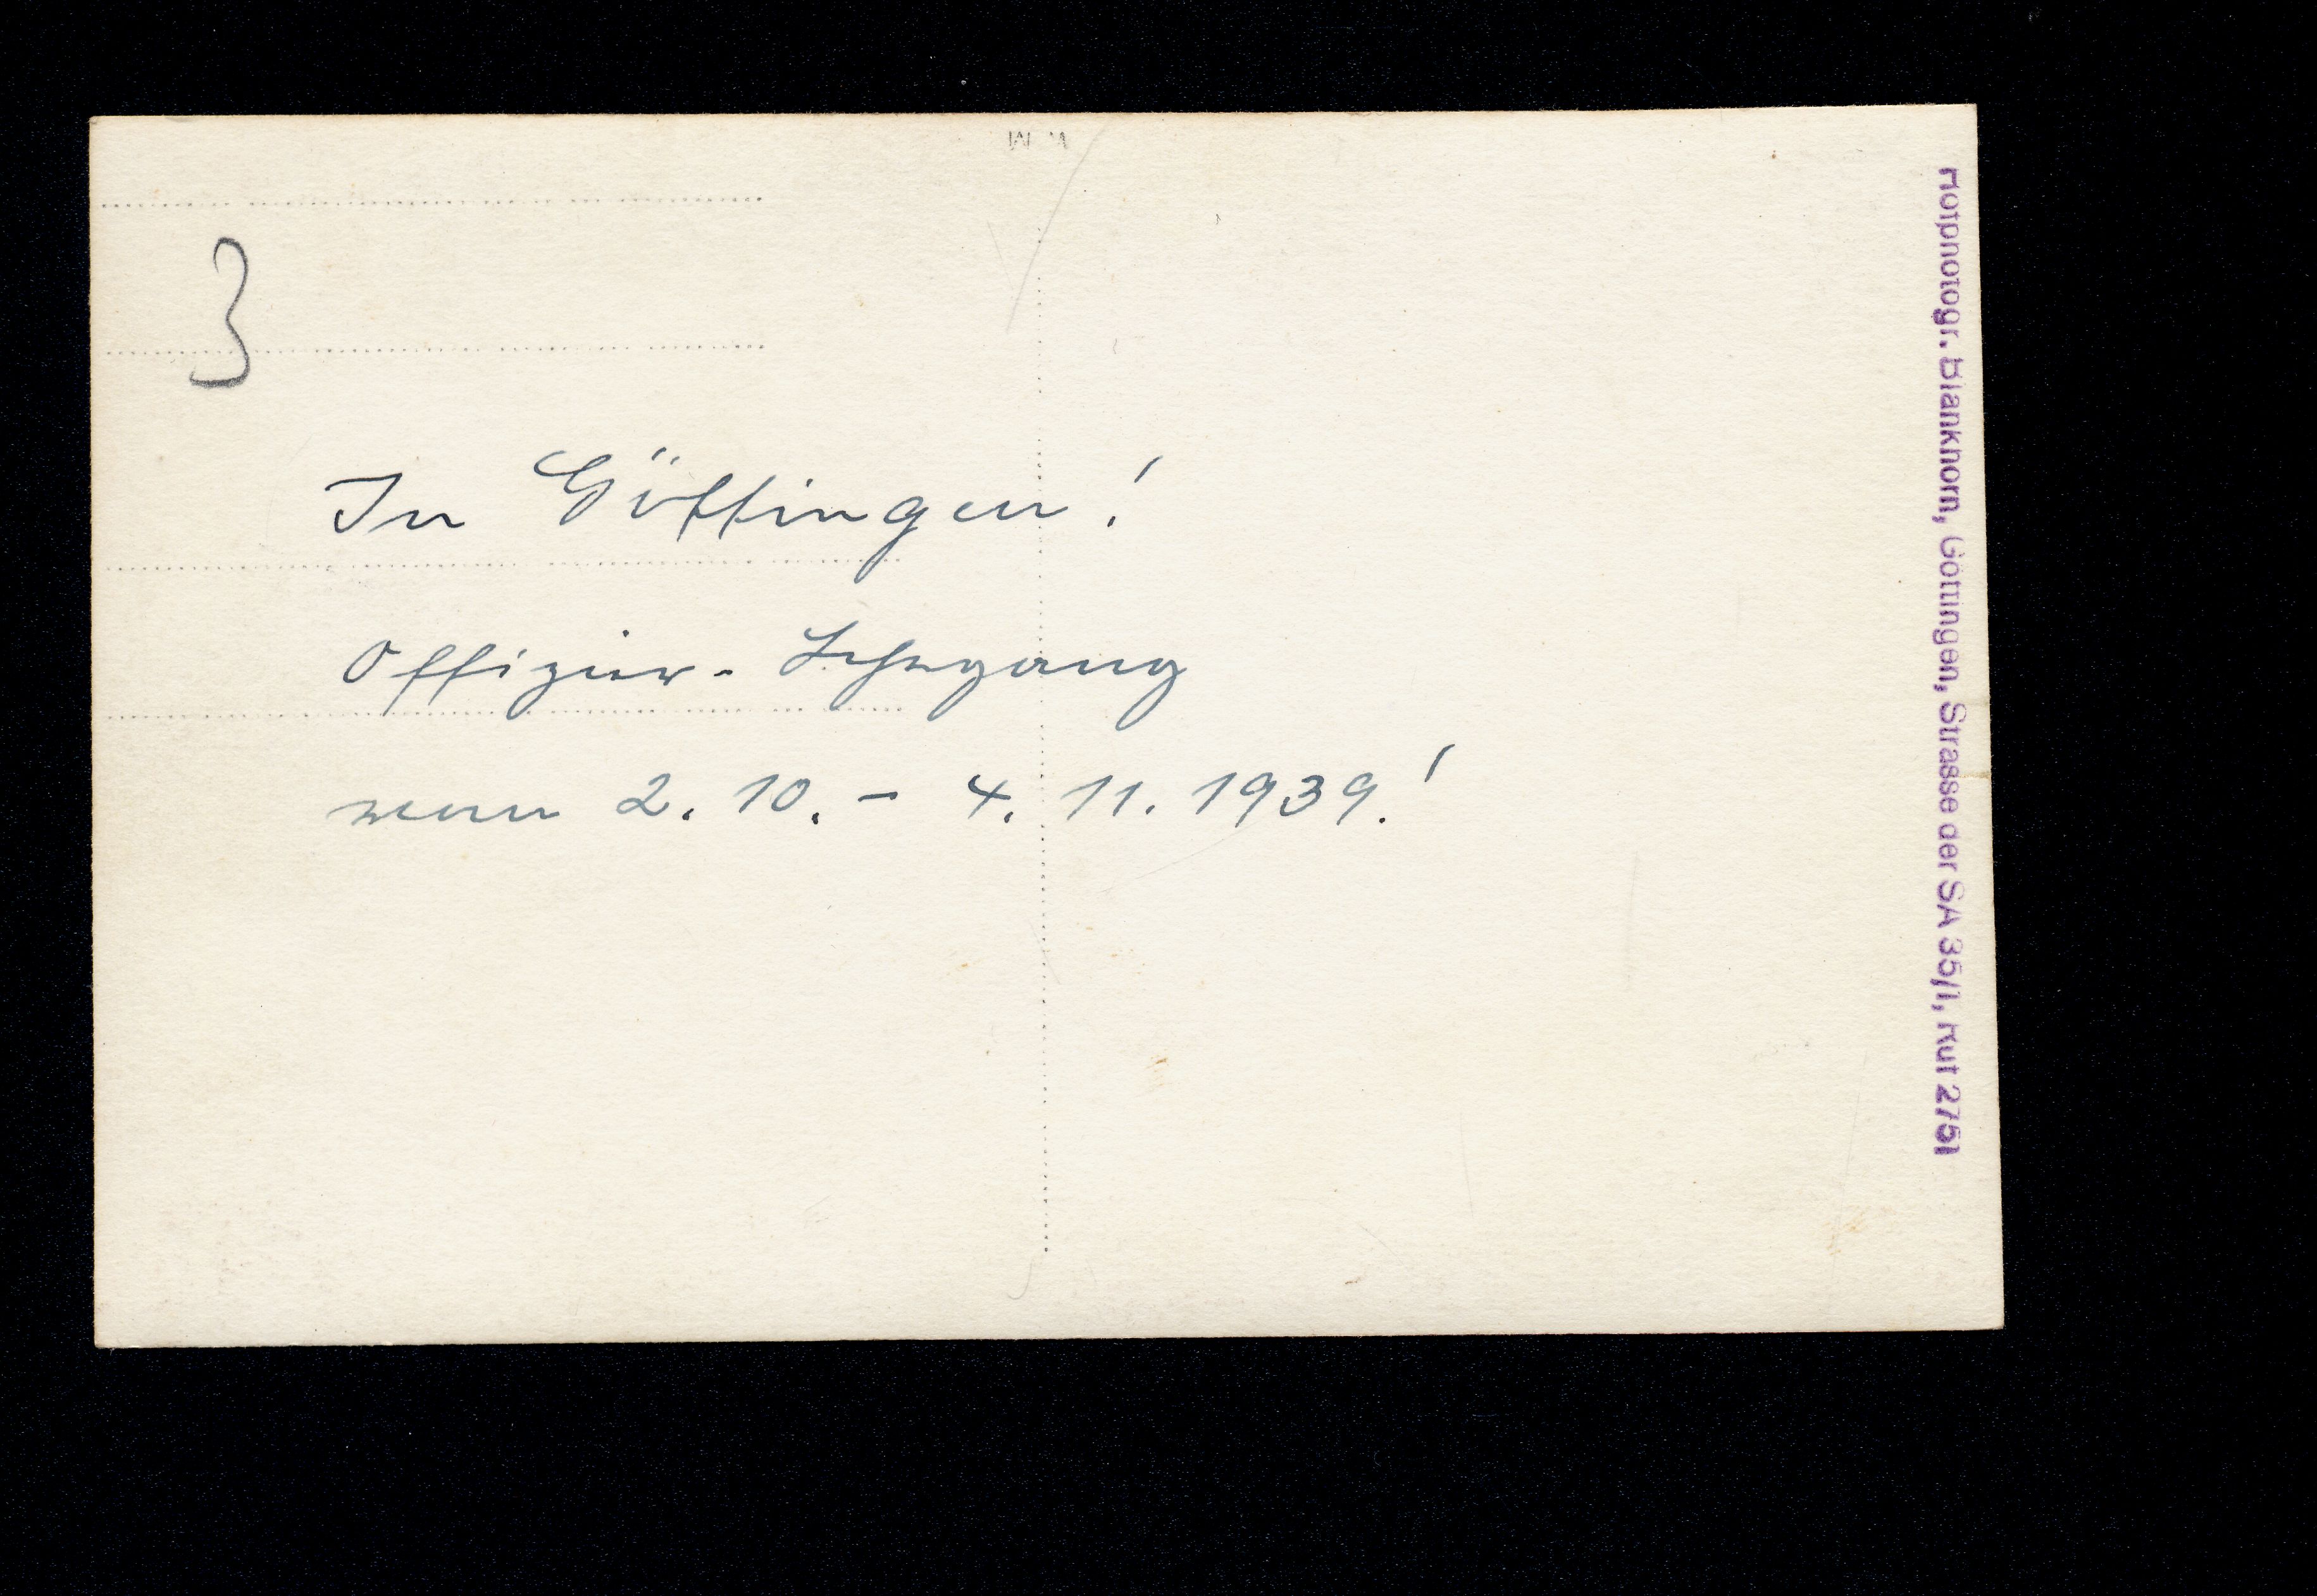 3
In Göttingen!
Offizier-Lehrgang
vom 2. 10. - 4. 11. 1939!
Hofphotogr. Blankhorn, Göttingen, Strasse der SA 35/I, Ruf 2751